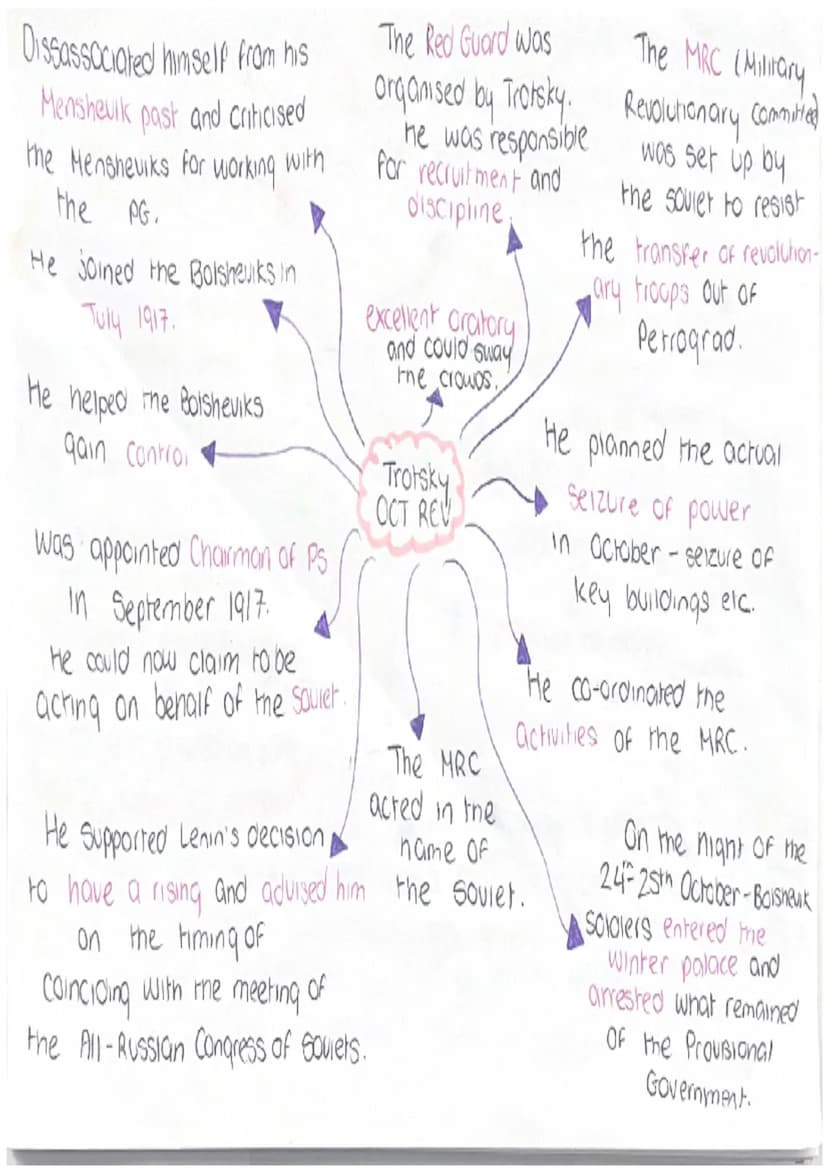 Dissassociated himself from his
Menshevik past and criticised
the Mensheviks for working with
the PG.
He joined the Bolsheviks in
July 1917.
He helped the Bolsheviks
gain control
Was appointed Chairman of PS
in September 1917.
He could now claim to be
acting on behalf of the Soviet.
He supported Lenin's decision
to have a rising and advised him
on the timing of
coinciding with the meeting of
the All-Russian Congress of Soviets.
The Red Guard was
organised by Trotsky.
he was responsible
for recruitment and
discipline.
excellent oratory
and could sway
the crowds.
Trotsky
OCT REV
The MRC
acted in the
name of
the Soviet.
The MRC (Military
Revolutionary Committee)
was set up by
the soviet to resist
the transfer of revolution-
ary troops out of
Petrograd.
He planned the actual
seizure of power
in October - seizure of
key buildings etc.
He co-ordinated the
activities of the MRC.
On the night of the
24th-25th October-Bolshevik
soldiers entered the
winter palace and
arrested what remained
of the Provisional
Government.